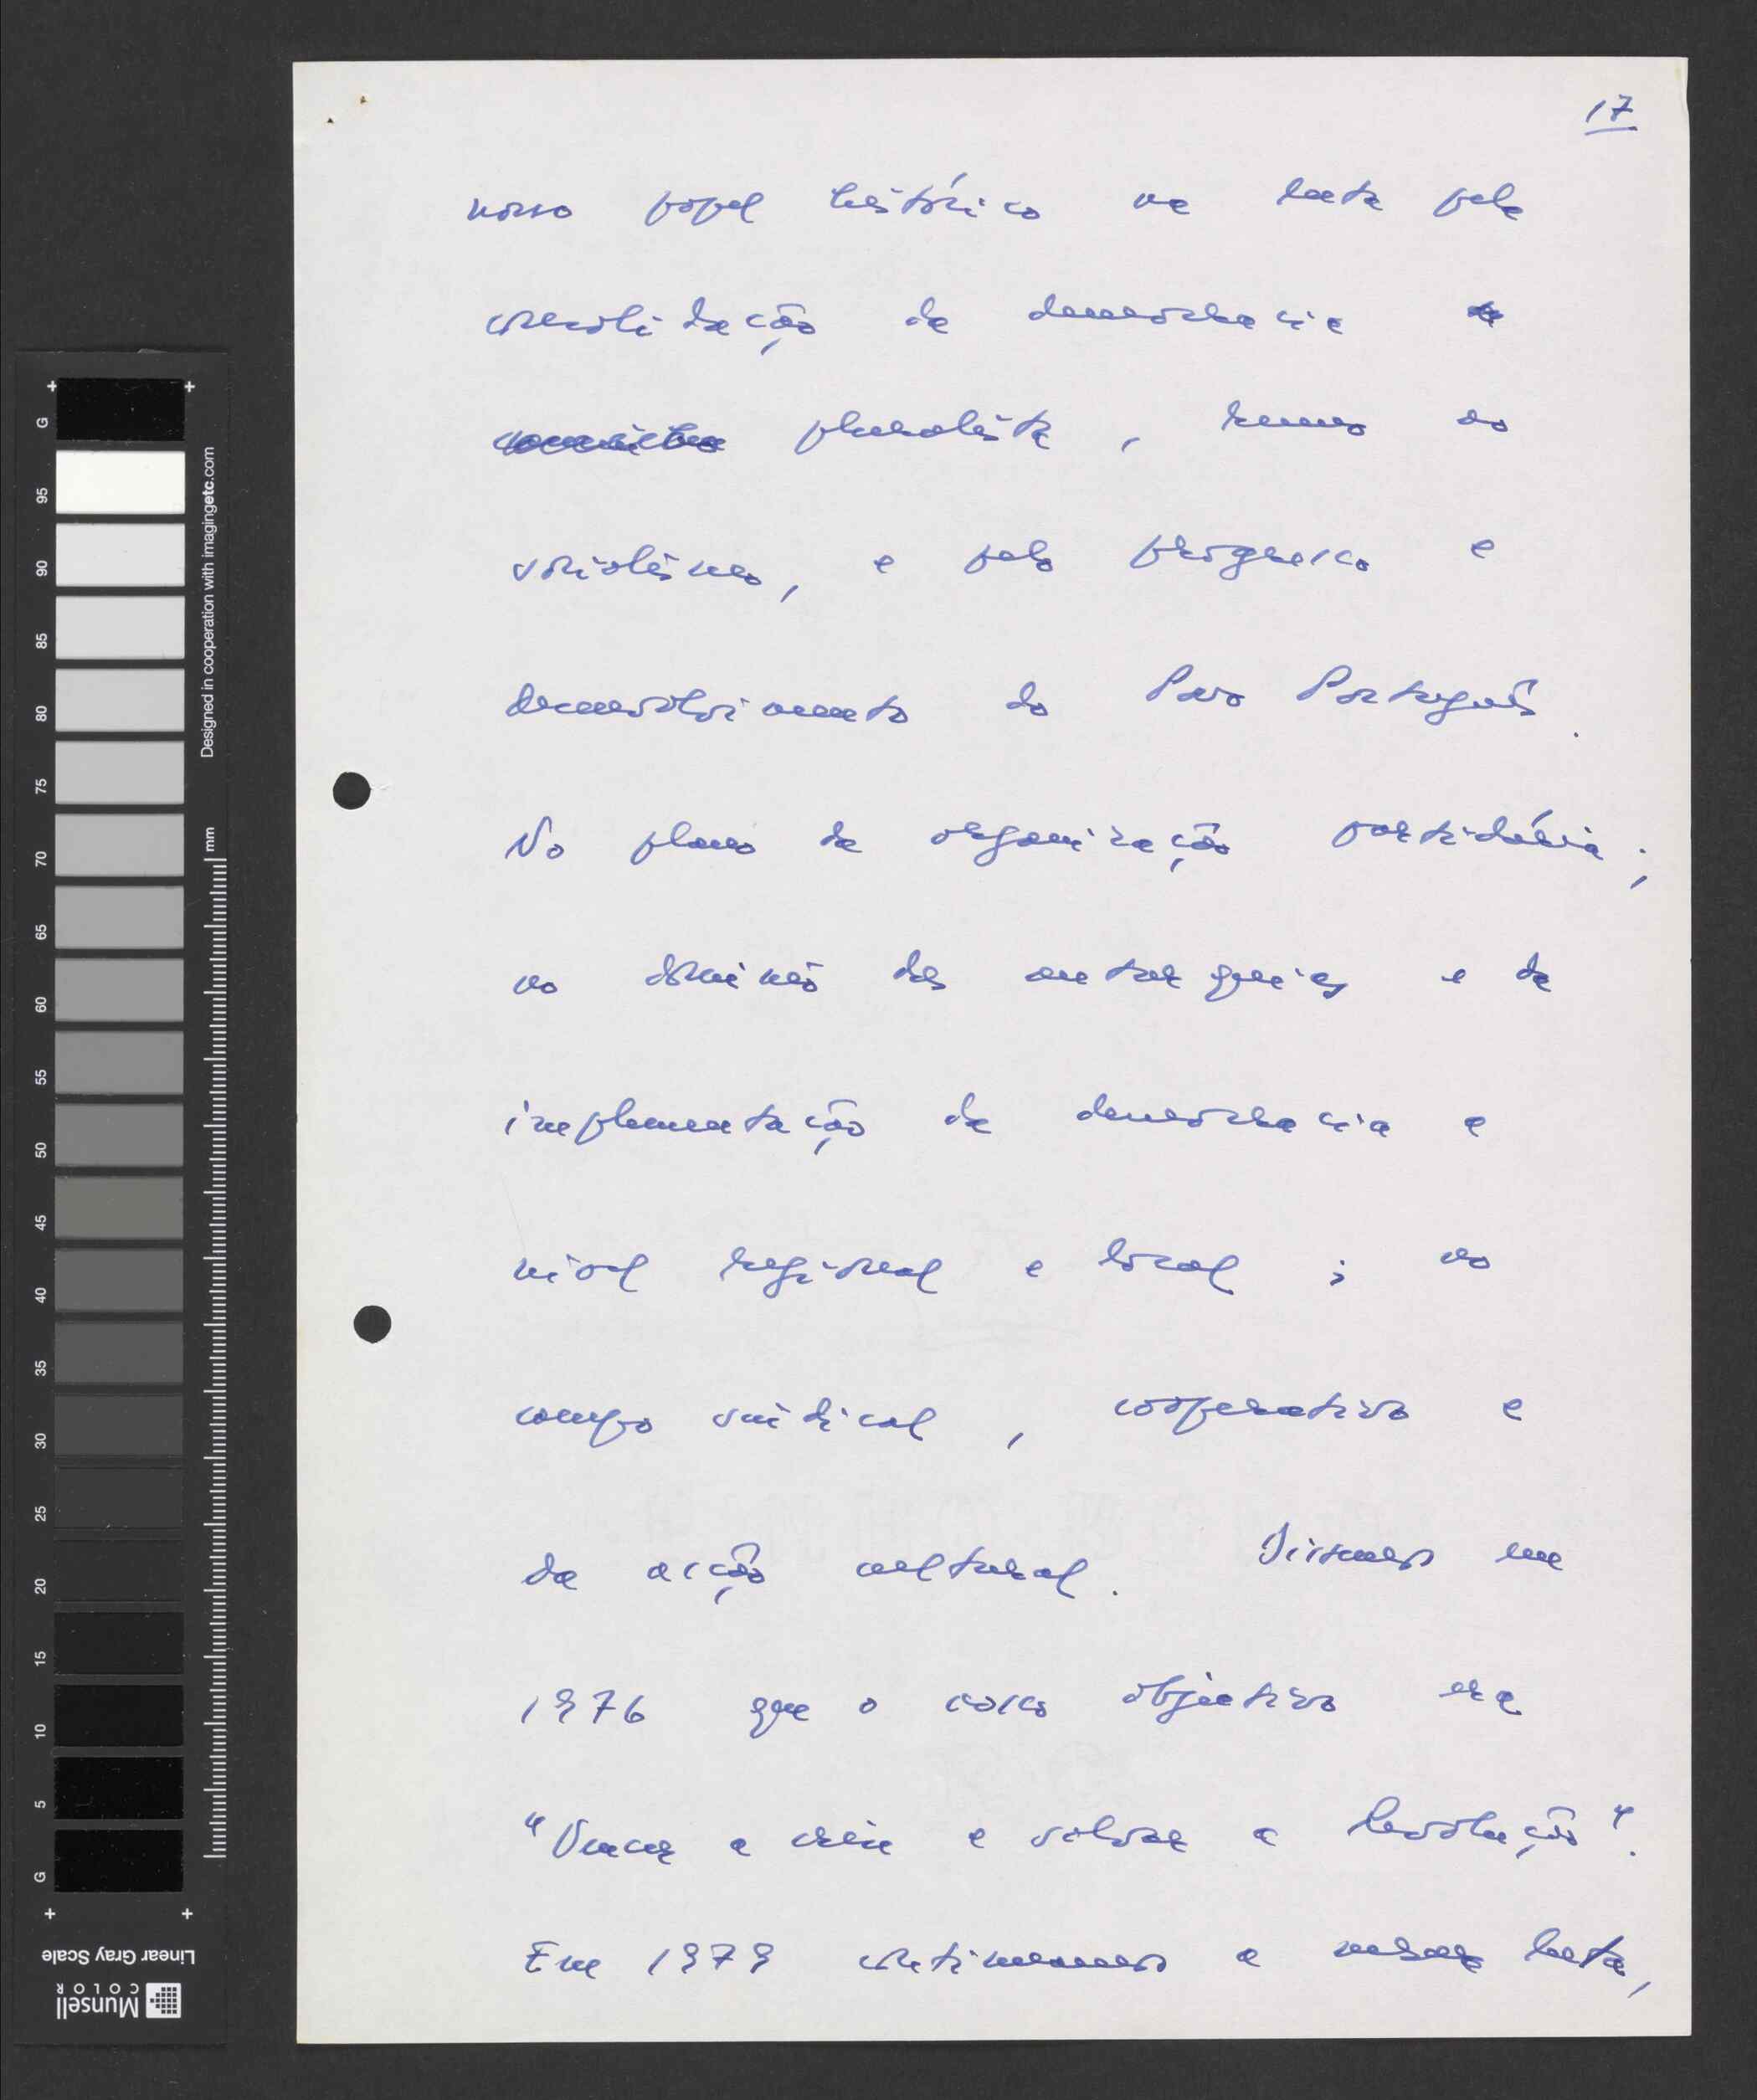 17
nosso papel histórico na luta pela
consolidação da democracia
pluralista, rumo ao
socialismo, e pelo progresso e
desenvolvimento do Povo Português.
No plano da organização partidária;
no domínio das autarquias e da
implementação da democracia a
nível regional e local; no
campo sindical, cooperativo e
da acção cultural. Dissemos em
1976 que o nosso objectivo era
"Vencer a crise e salvar a Revolução".
Em 1979 continuamos a mesma luta,
G 95 90 85 80 75 70 65 60 55 50 45 40 35 30 25 20 15 10 5 G
Designed in cooperation with imagingetc.com
mm
Linear Gray Scale
Munsell
COLOR